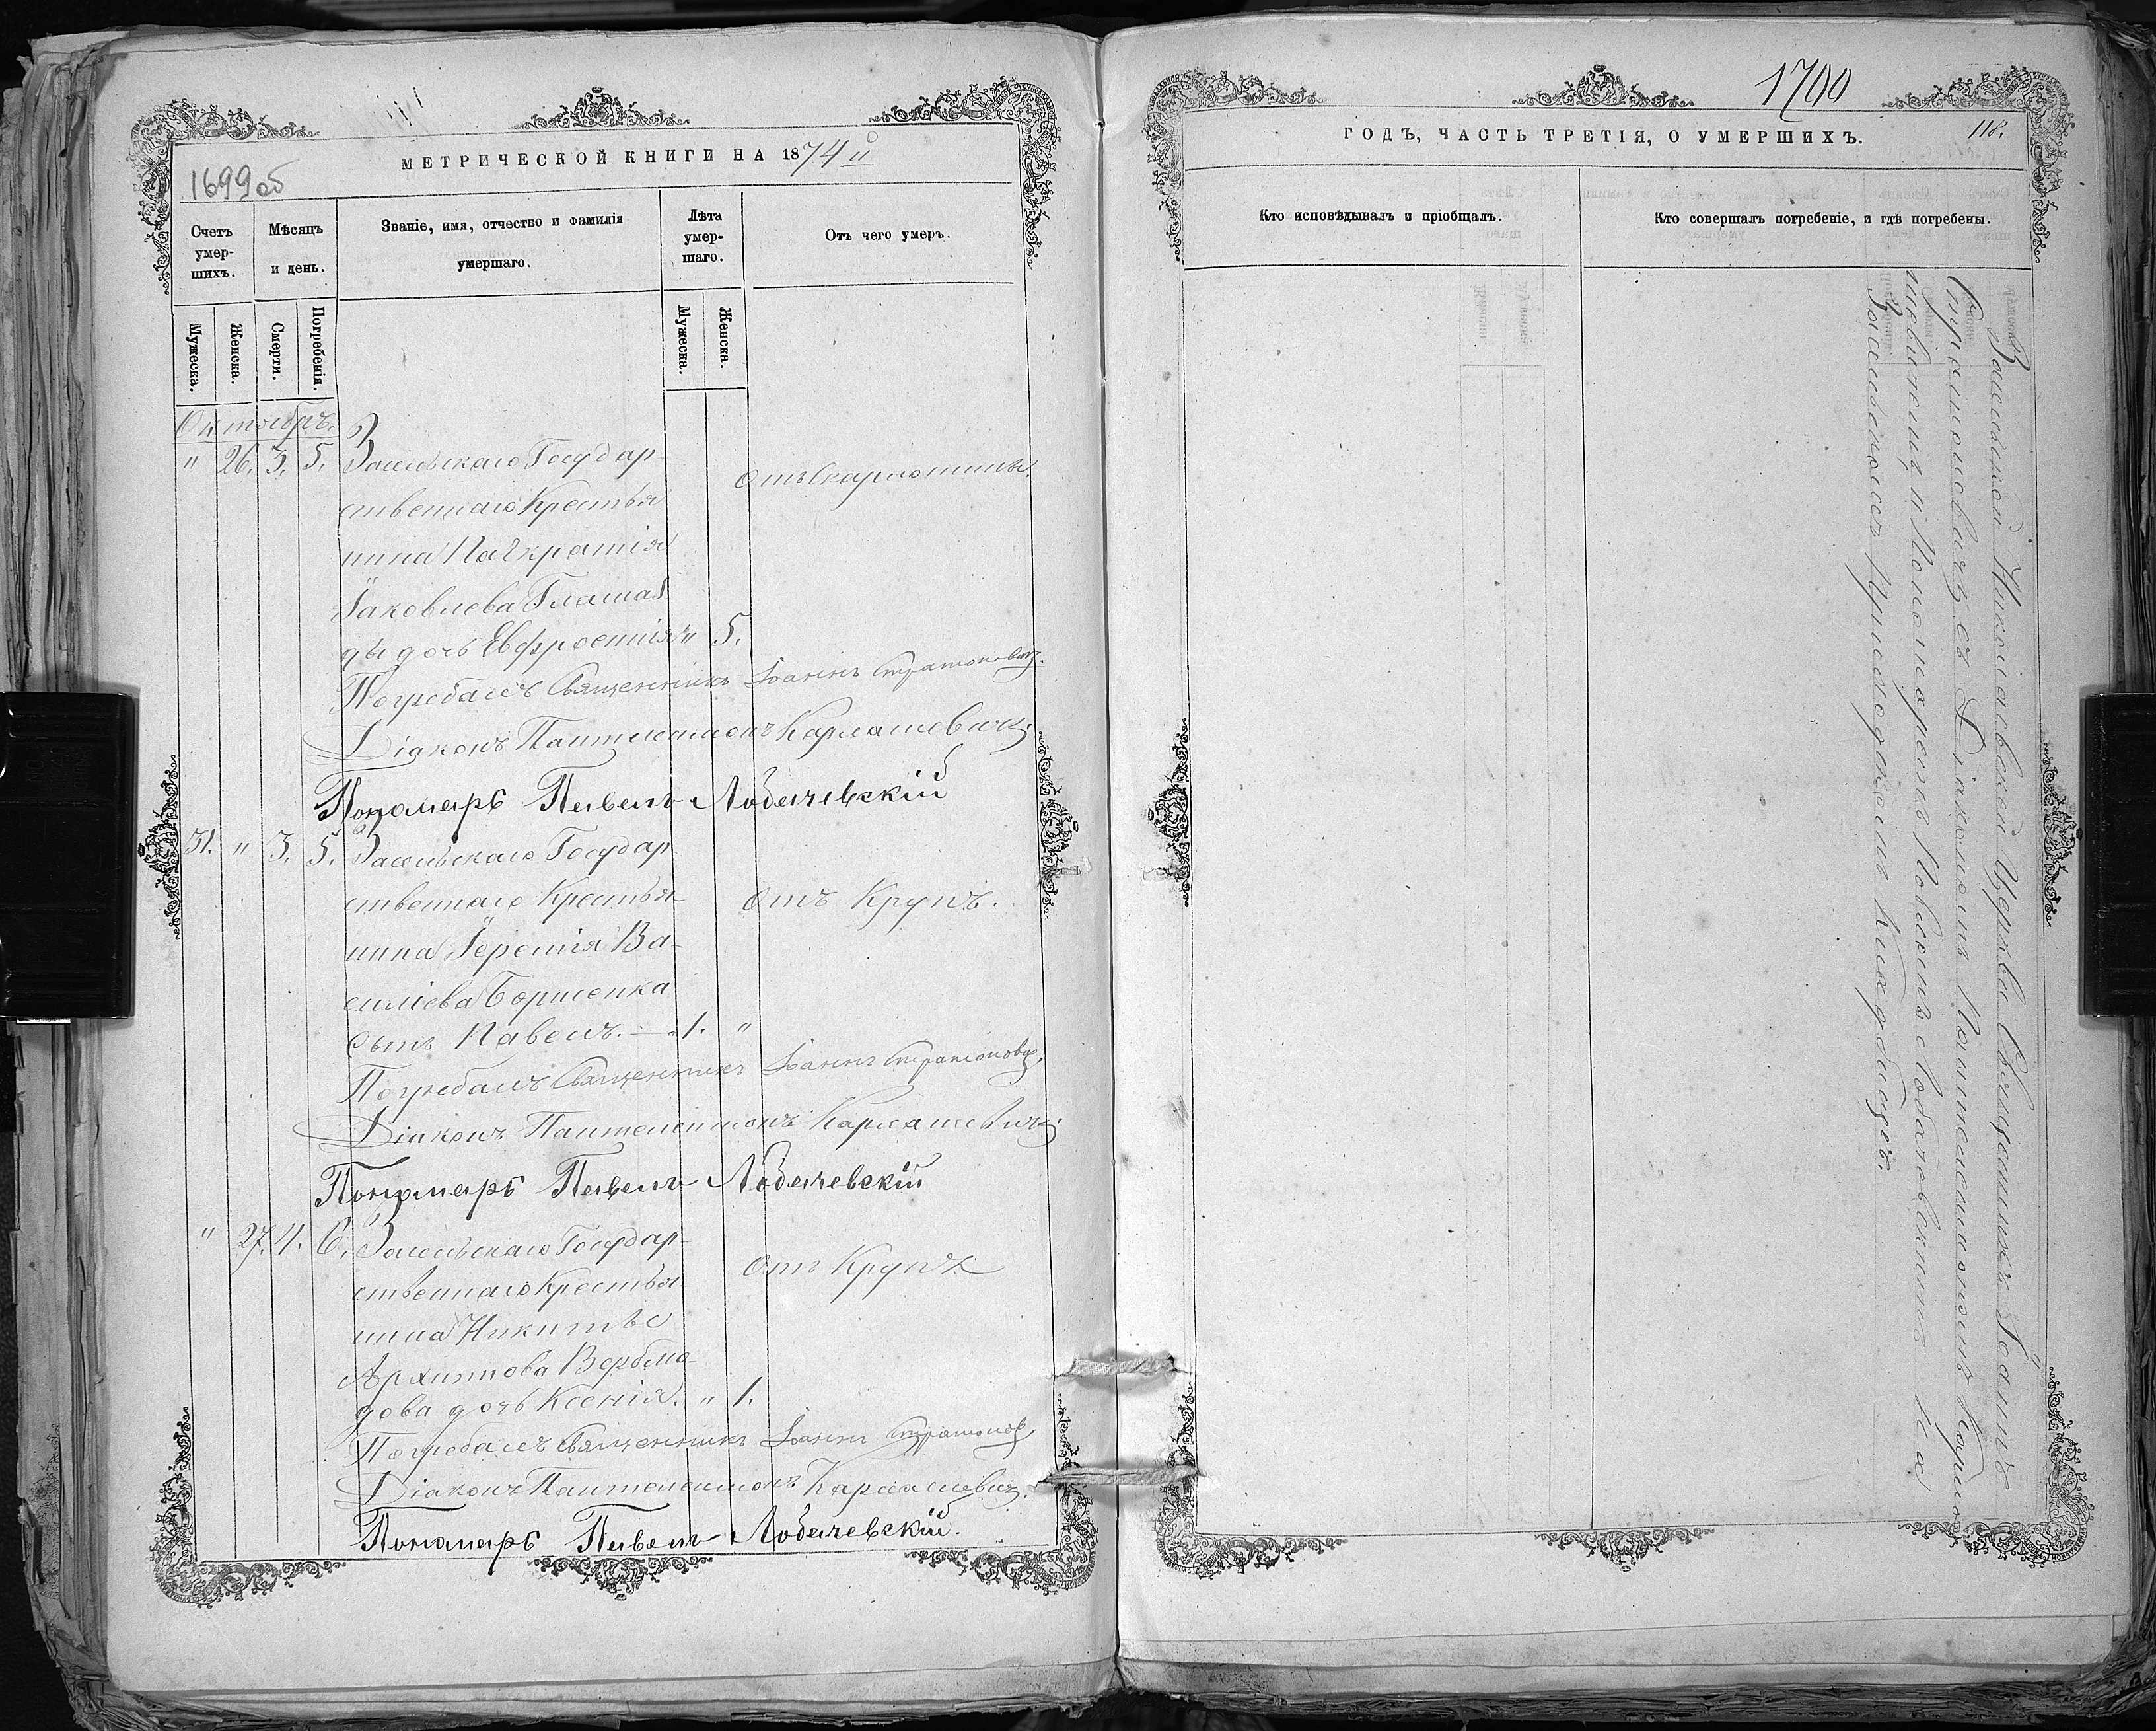 МЕТРИЧЕСКОЙ КНИГИ НА 1874 й
1699 об
Счетъ умер-шихъ.
Мѣсяцъ и день.
Званіе, имя, отчество и фамилія умершаго.
Лѣта умер-шаго.
Отъ чего умеръ.
Мужеска.
Женска.
Смерти.
Погребенія.
Мужеска.
Женска.
Октобръ.
" 26. 3. 5. Засельскаго Государ
ственнаго Крестья
нина Панкратія
Іаковлева
ды дочь Евфросинія " 5.
отъ Скарлотины.
Погребалъ Священникъ Іоаннъ Стратоновичъ.
Діаконъ Пантелеимонъ Карлашевичъ
Пономарь Павелъ Лобачевскій
31. " 3. 5. Засельскаго Государ
ственнаго Крестья-
нина Іеремія Ва-
силіева Борисенка
сынъ Павелъ. 1. "
отъ Крупъ.
Погребалъ Священникъ Іоаннъ Стратоновичъ
Діаконъ Пантелеимонъ Карлашевичъ
Пономарь Павелъ Лобачевскій
" 27. 4. 6. Засельскаго Государ-
ственнаго Крестья-
нина Никиты
Архипова Вербло-
дова дочь Ксенія. " 1.
отъ Крупъ
Погребалъ Священникъ Іоаннъ Стратонов
Діаконъ Пантелеимонъ Карлашевичъ.
Пономарь Павелъ Лобачевскій.
1700
118.
ГОДЪ, ЧАСТЬ ТРЕТІЯ, О УМЕРШИХЪ.
Кто исповѣдывалъ и пріобщалъ.
Кто совершалъ погребеніе, и гдѣ погребены.
Засельской Николаевской Церкви Священникъ Іоаннъ
Стратоновичъ съ Діакономъ Пантелеимономъ Карла
шевичомъ и Пономаремъ Павломъ Лобачевскимъ на
Засельскомъ Приходскомъ Кладбищѣ.